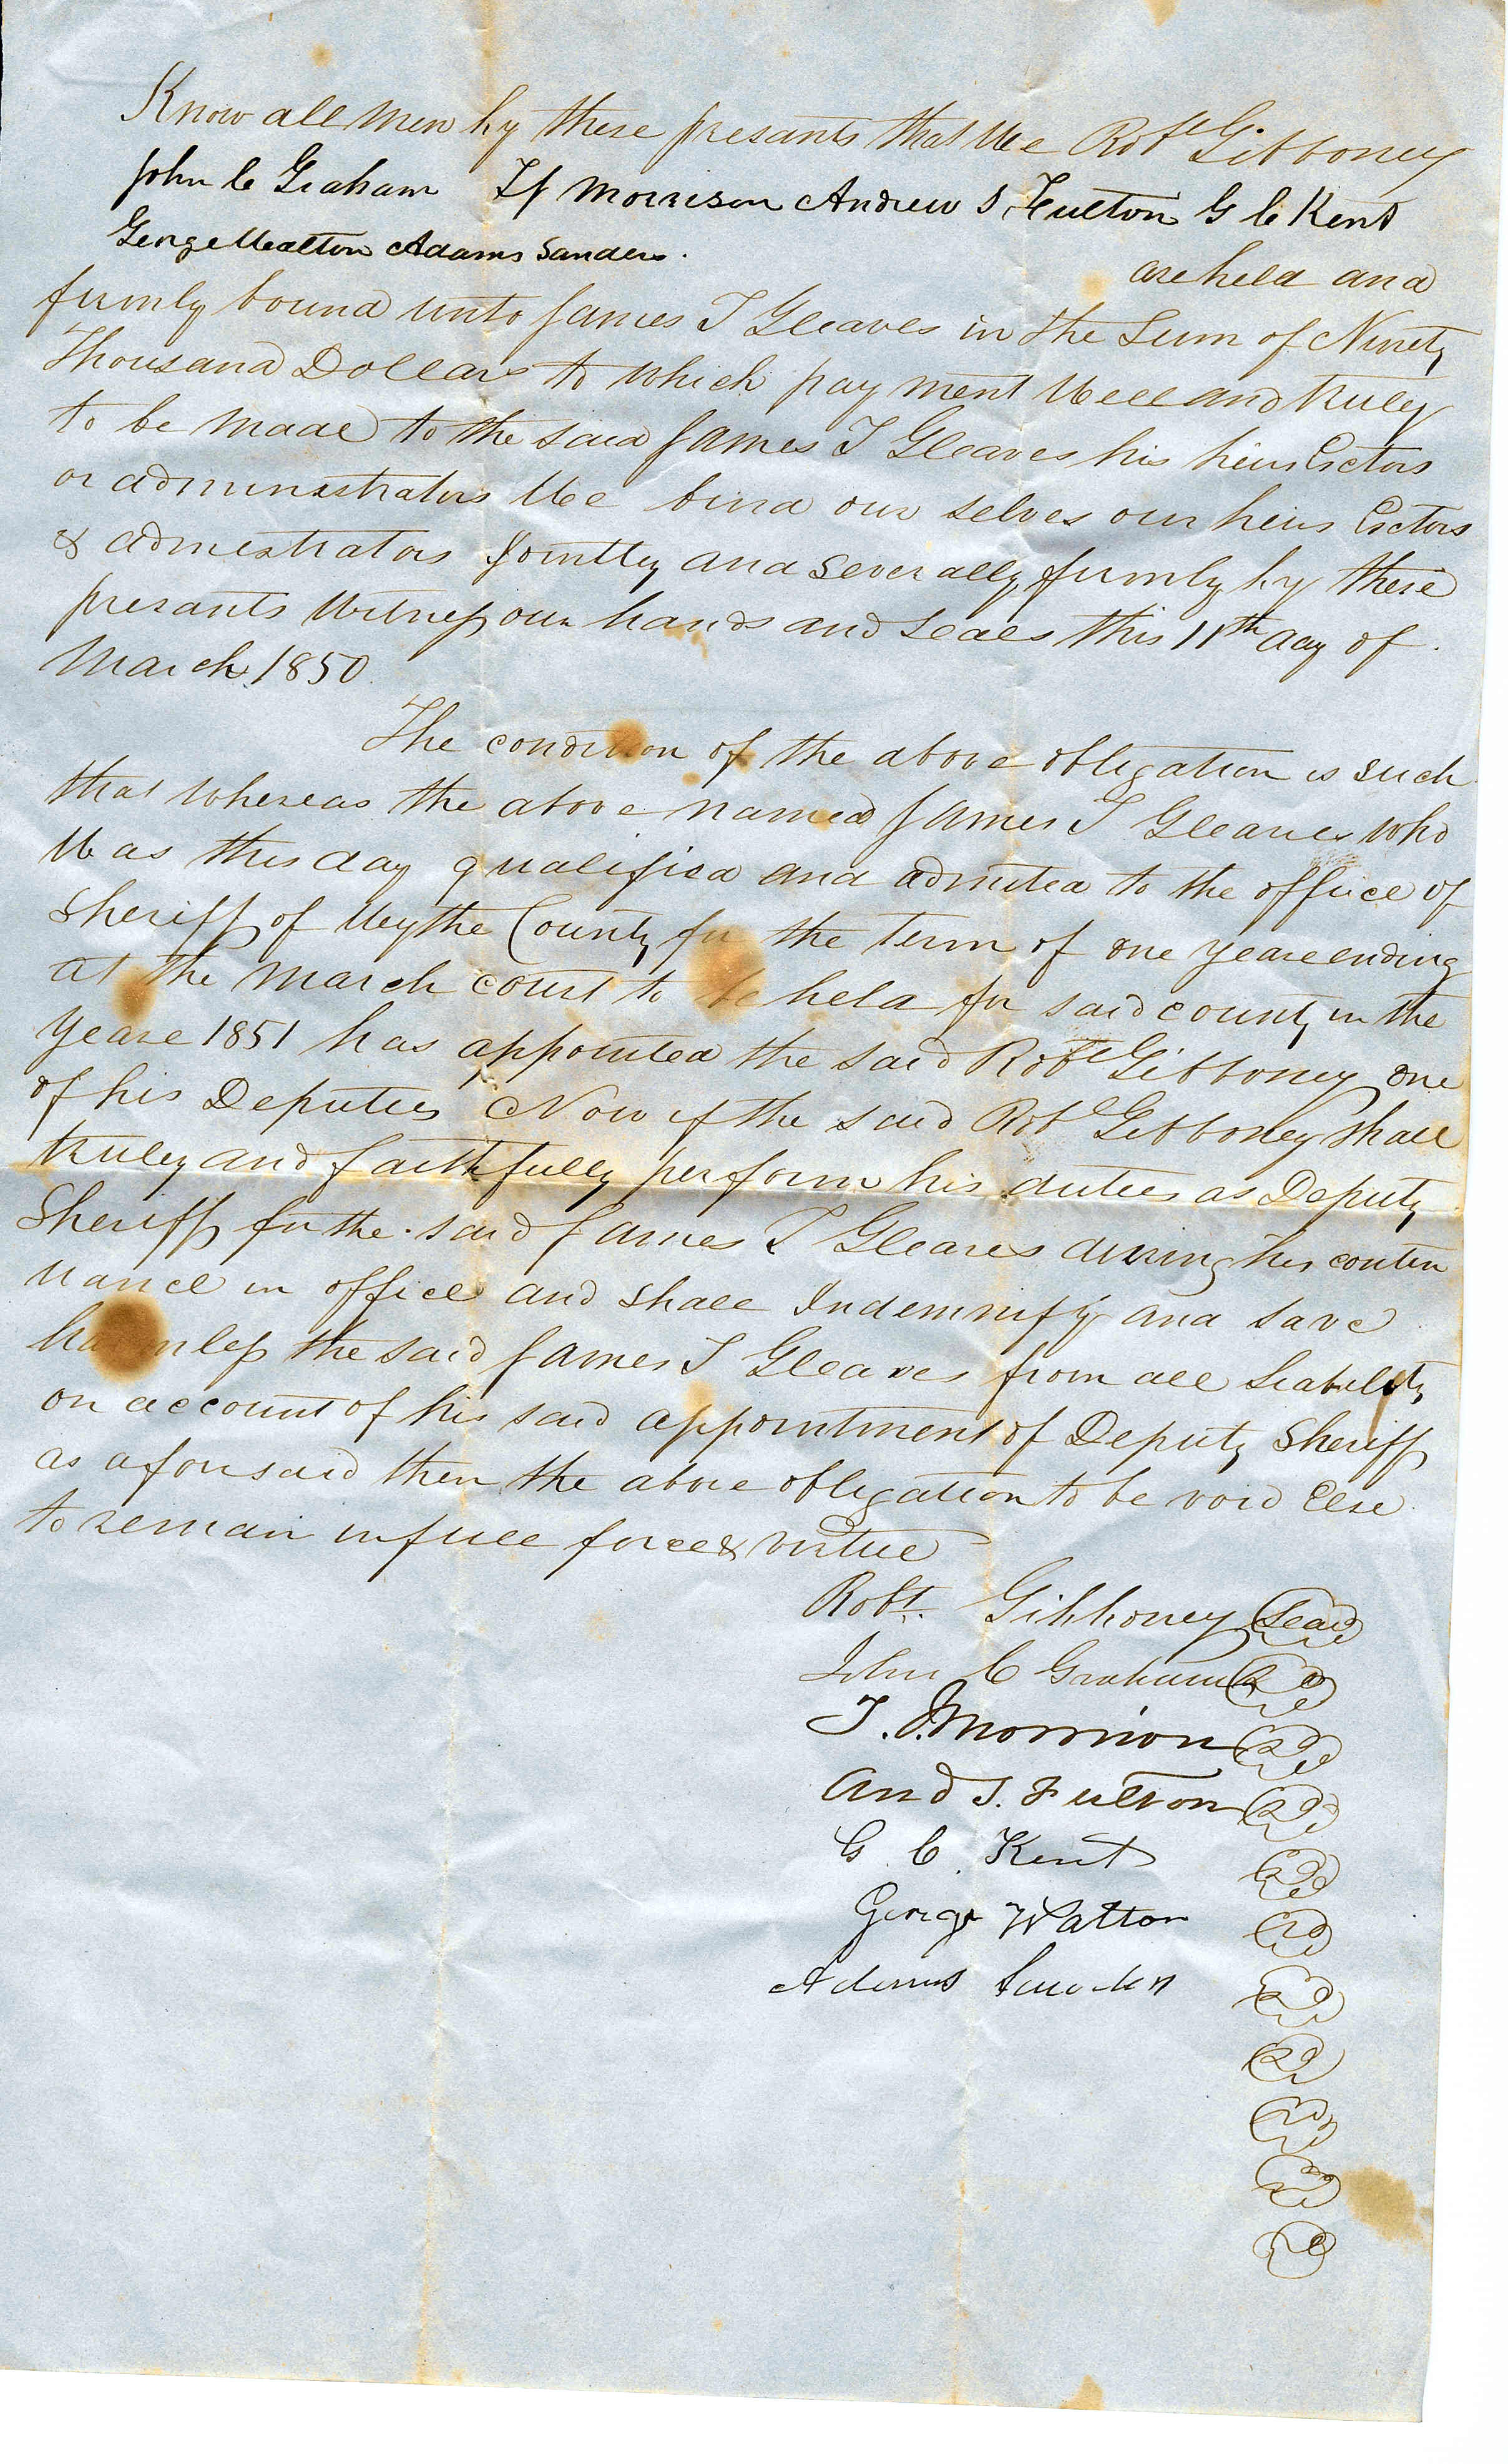 Know all Men by these presants that We Robt Gibboney
John C Graham T J Morrison Andrew S Fulton G C Kent
George Walton Adams Sanders.
are held and
firmly bound unto James T Gleaves in the Sum of Ninety
Thousand Dollars to which pay ment Well and truley
to be Made to the said James T Gleaves his heirs Exctors
or administrators We bind our selves our heirs Exctors
& admestrators Jointley and Severally firmly by these
presants Witness our hands and Seals this 11th day of
March 1850
The condition of the above obligation is such
that whereas the above named James T Gleaves who
Was this day qualified and admited to the office of
Sheriff of Wythe County for the Term of one yeare ending
at the March court to be held for said county in the
yeare 1851 has appointed the said Robt Gibboney one
of his Deputies Now if the said Robt Gibboney shall
truley and faithfully perform his duties as Deputy
Sheriff for the said James T Gleaves during his contin
uance in office and shall Indemnify and save
harmless the said James T Gleaves from all liability
on account of his said appointment of Deputy Sheriff
as aforesaid then the above obligation to be void Else
to remain in full force & virtue
Robt. Gibboney Seal
John C Graham
T. J. Morrison
And S. Fulton
G. C. Kent
George Walton
Adams Sanders